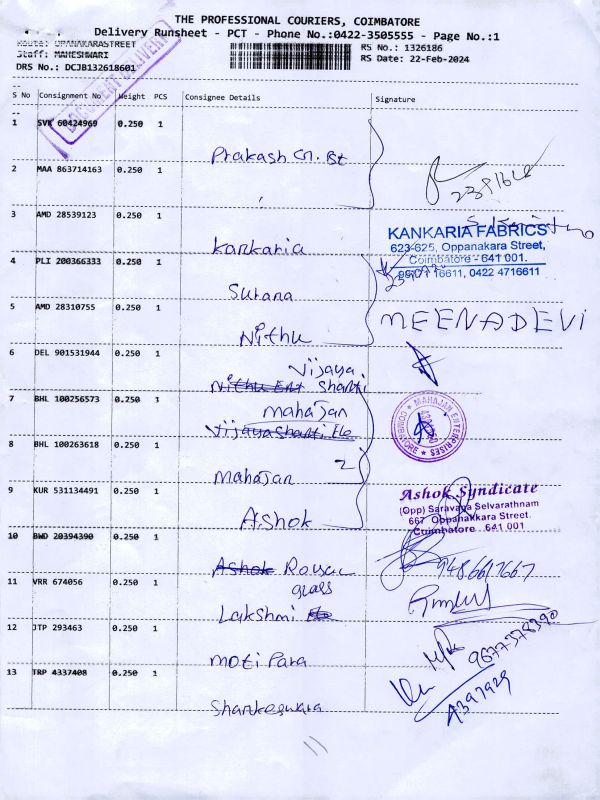 THE PROFESSIONAL COURIERS, COIMBATORE
Delivery Runsheet - PCT - Phone No.:0422-3505555 - Page No.:1
Route: OPANAKARASTREET RS No.: 1326186
Staff: MAHESHWARI RS Date: 22-Feb-2024
DRS No.: DCJB132618601
DOCUMENT DELIVERY
S No Consignment No Weight PCS Consignee Details Signature
1 SVK 60424969 0.250 1
Prakash
2 MAA 863714163 0.250 1
3 AMD 28539123 0.250 1
Kankaria
KANKARIA FABRICS
623-625, Oppanakara Street,
Coimbatore - 641 001.
16611, 0422 4716611
4 PLI 200366333 0.250 1
Surana
5 AMD 28310755 0.250 1
Nithu
MEENADEVI
6 DEL 901531944 0.250 1
Vijaya
Nithu Ent Shanti
7 BHL 100256573 0.250 1
mahajan
Vijaya Shanti
MAHAJAN ENTERPRISES
COIMBATORE
8 BHL 100263618 0.250 1
mahajan 2
9 KUR 531134491 0.250 1
Ashok
Ashok Syndicate
(Opp) Saravana Selvarathnam
667 Oppanakkara Street.
Coimbatore 641 001
10 BWD 20394390 0.250 1
Ashok Royal
glass
9486617667
11 VRR 674056 0.250 1
Lakshmi
12 JTP 293463 0.250 1
moti Para
9677378390
13 TRP 4337408 0.250 1
Shankeswara